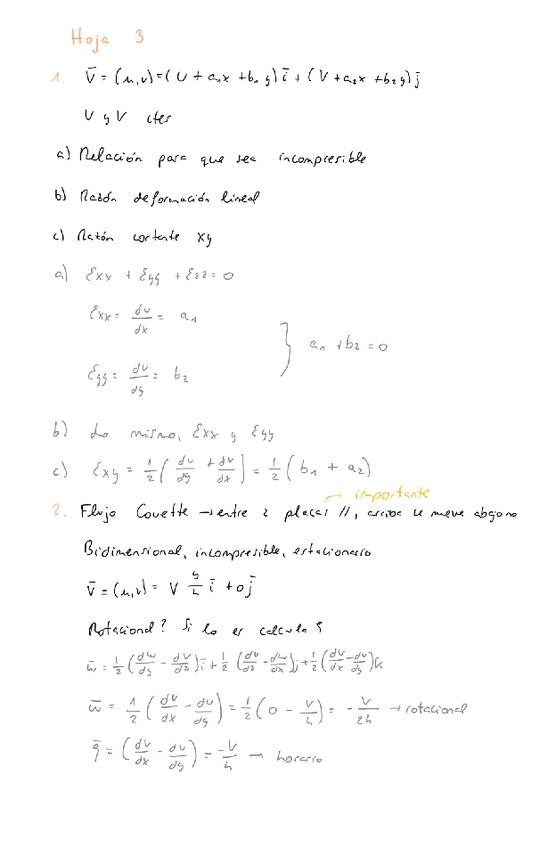 Hoja 3
1. V̄ = (u,v) = (U + a₁x + b₁y) ī + (V + a₂x + b₂y) j̄
U y V ctes
a) Relación para que sea incompresible
b) Razón deformación lineal
c) Razón cortante xy
a) Ɛxx + Ɛyy + Ɛzz = 0
Ɛxx = du/dx = a₁
} a₁ + b₂ = 0
Ɛyy = dv/dy = b₂
b) Lo mismo, Ɛxx y Ɛyy
c) Ɛxy = 1/2 (du/dy + dv/dx) = 1/2 (b₁ + a₂)
importante
2. Flujo Couette → entre 2 placas //, arriba se mueve abajo no
Bidimensional, incompresible, estacionario
V̄ = (u,v) = V y/h ī + 0j̄
Rotacional? Si lo es calcula ξ
w̄ = 1/2 (dw/dy - dv/dz) ī + 1/2 (du/dz - dw/dx) j + 1/2 (dv/dx - du/dy) k̄
w̄ = 1/2 (dv/dx - du/dy) = 1/2 (0 - V/h) = - V/2h → rotacional
ξ̄ = (dv/dx - du/dy) = -V/h → horario